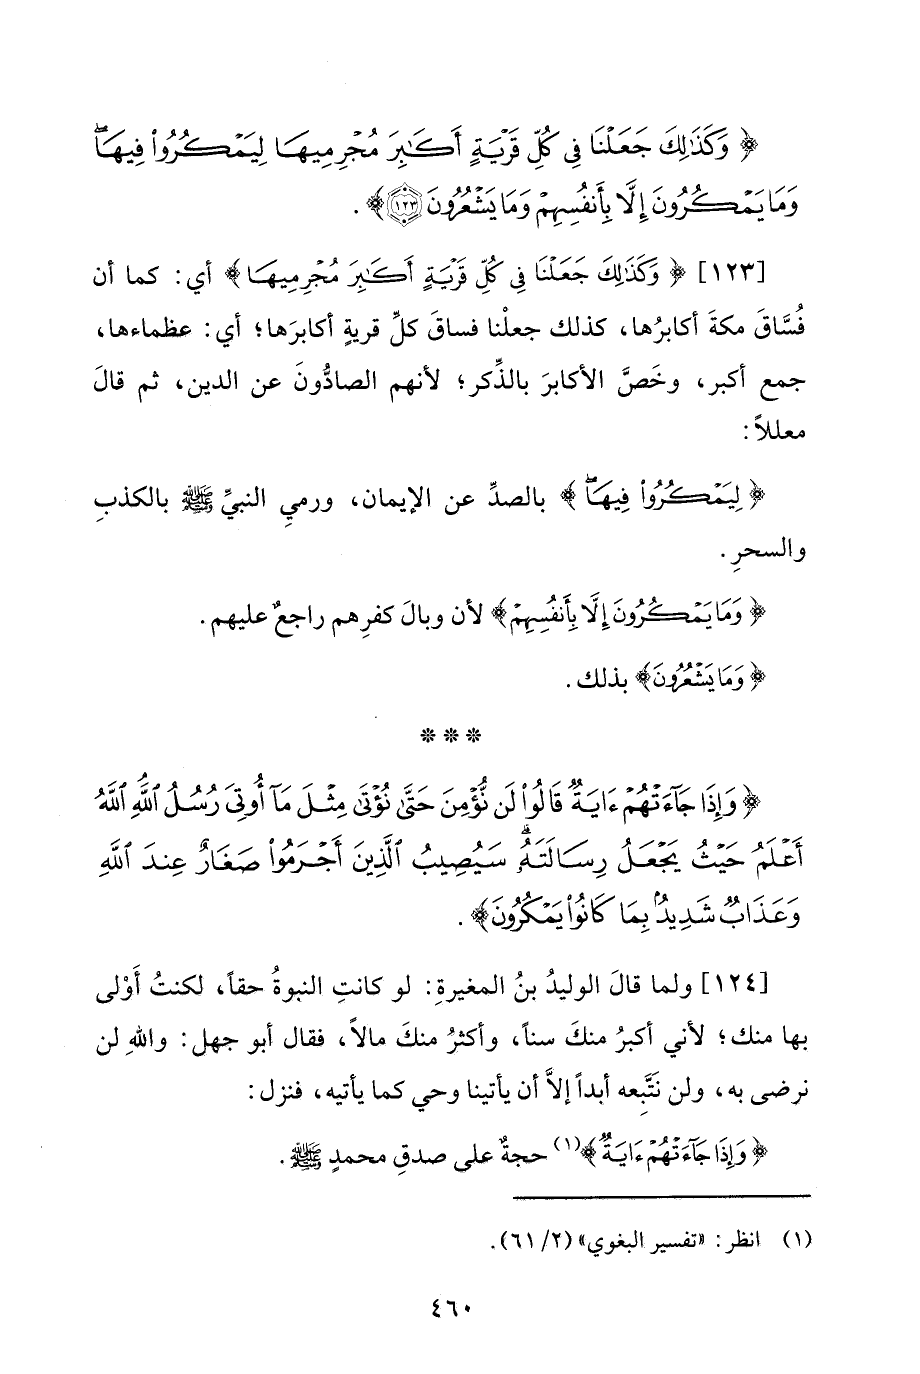 ﴿ وَكَذَٰلِكَ جَعَلْنَا فِى كُلِّ قَرْيَةٍ أَكَٰبِرَ مُجْرِمِيهَا لِيَمْكُرُوا۟ فِيهَا ۖ
وَمَا يَمْكُرُونَ إِلَّا بِأَنفُسِهِمْ وَمَا يَشْعُرُونَ ١٢٣﴾ .
[١٢٣] ﴿ وَكَذَٰلِكَ جَعَلْنَا فِى كُلِّ قَرْيَةٍ أَكَٰبِرَ مُجْرِمِيهَا ﴾ أي: كما أن
فُسَّاقَ مكةَ أكابرُها، كذلك جعلْنا فساقَ كلِّ قريةٍ أكابرَها؛ أي: عظماءها،
جمع أكبر، وخَصَّ الأكابرَ بالذِّكر؛ لأنهم الصادُّونَ عن الدين، ثم قالَ
معللاً:
﴿ لِيَمْكُرُوا۟ فِيهَا ۖ ﴾ بالصدِّ عن الإيمان، ورميِ النبيِّ ﷺ بالكذبِ
والسحرِ .
﴿ وَمَا يَمْكُرُونَ إِلَّا بِأَنفُسِهِمْ ﴾ لأن وبالَ كفرِهم راجعٌ عليهم.
﴿ وَمَا يَشْعُرُونَ ﴾ بذلك .
* * *
﴿ وَإِذَا جَآءَتْهُمْ ءَايَةٌ قَالُوا۟ لَن نُّؤْمِنَ حَتَّىٰ نُؤْتَىٰ مِثْلَ مَآ أُوتِىَ رُسُلُ ٱللَّهِ ۘ ٱللَّهُ
أَعْلَمُ حَيْثُ يَجْعَلُ رِسَالَتَهُۥ ۗ سَيُصِيبُ ٱلَّذِينَ أَجْرَمُوا۟ صَغَارٌ عِندَ ٱللَّهِ
وَعَذَابٌ شَدِيدٌۢ بِمَا كَانُوا۟ يَمْكُرُونَ ﴾ .
[١٢٤] ولما قالَ الوليدُ بنُ المغيرةِ: لو كانتِ النبوةُ حقاً، لكنتُ أَوْلى
بها منك؛ لأني أكبرُ منكَ سناً، وأكثرُ منكَ مالاً، فقال أبو جهل: واللهِ لن
نرضى به، ولن نتَّبِعه أبداً إلاَّ أن يأتينا وحي كما يأتيه، فنزل:
﴿ وَإِذَا جَآءَتْهُمْ ءَايَةٌ ﴾(١) حجةٌ على صدقِ محمدٍ ﷺ .
(١) انظر: «تفسير البغوي» (٢/ ٦١).
٤٦٠